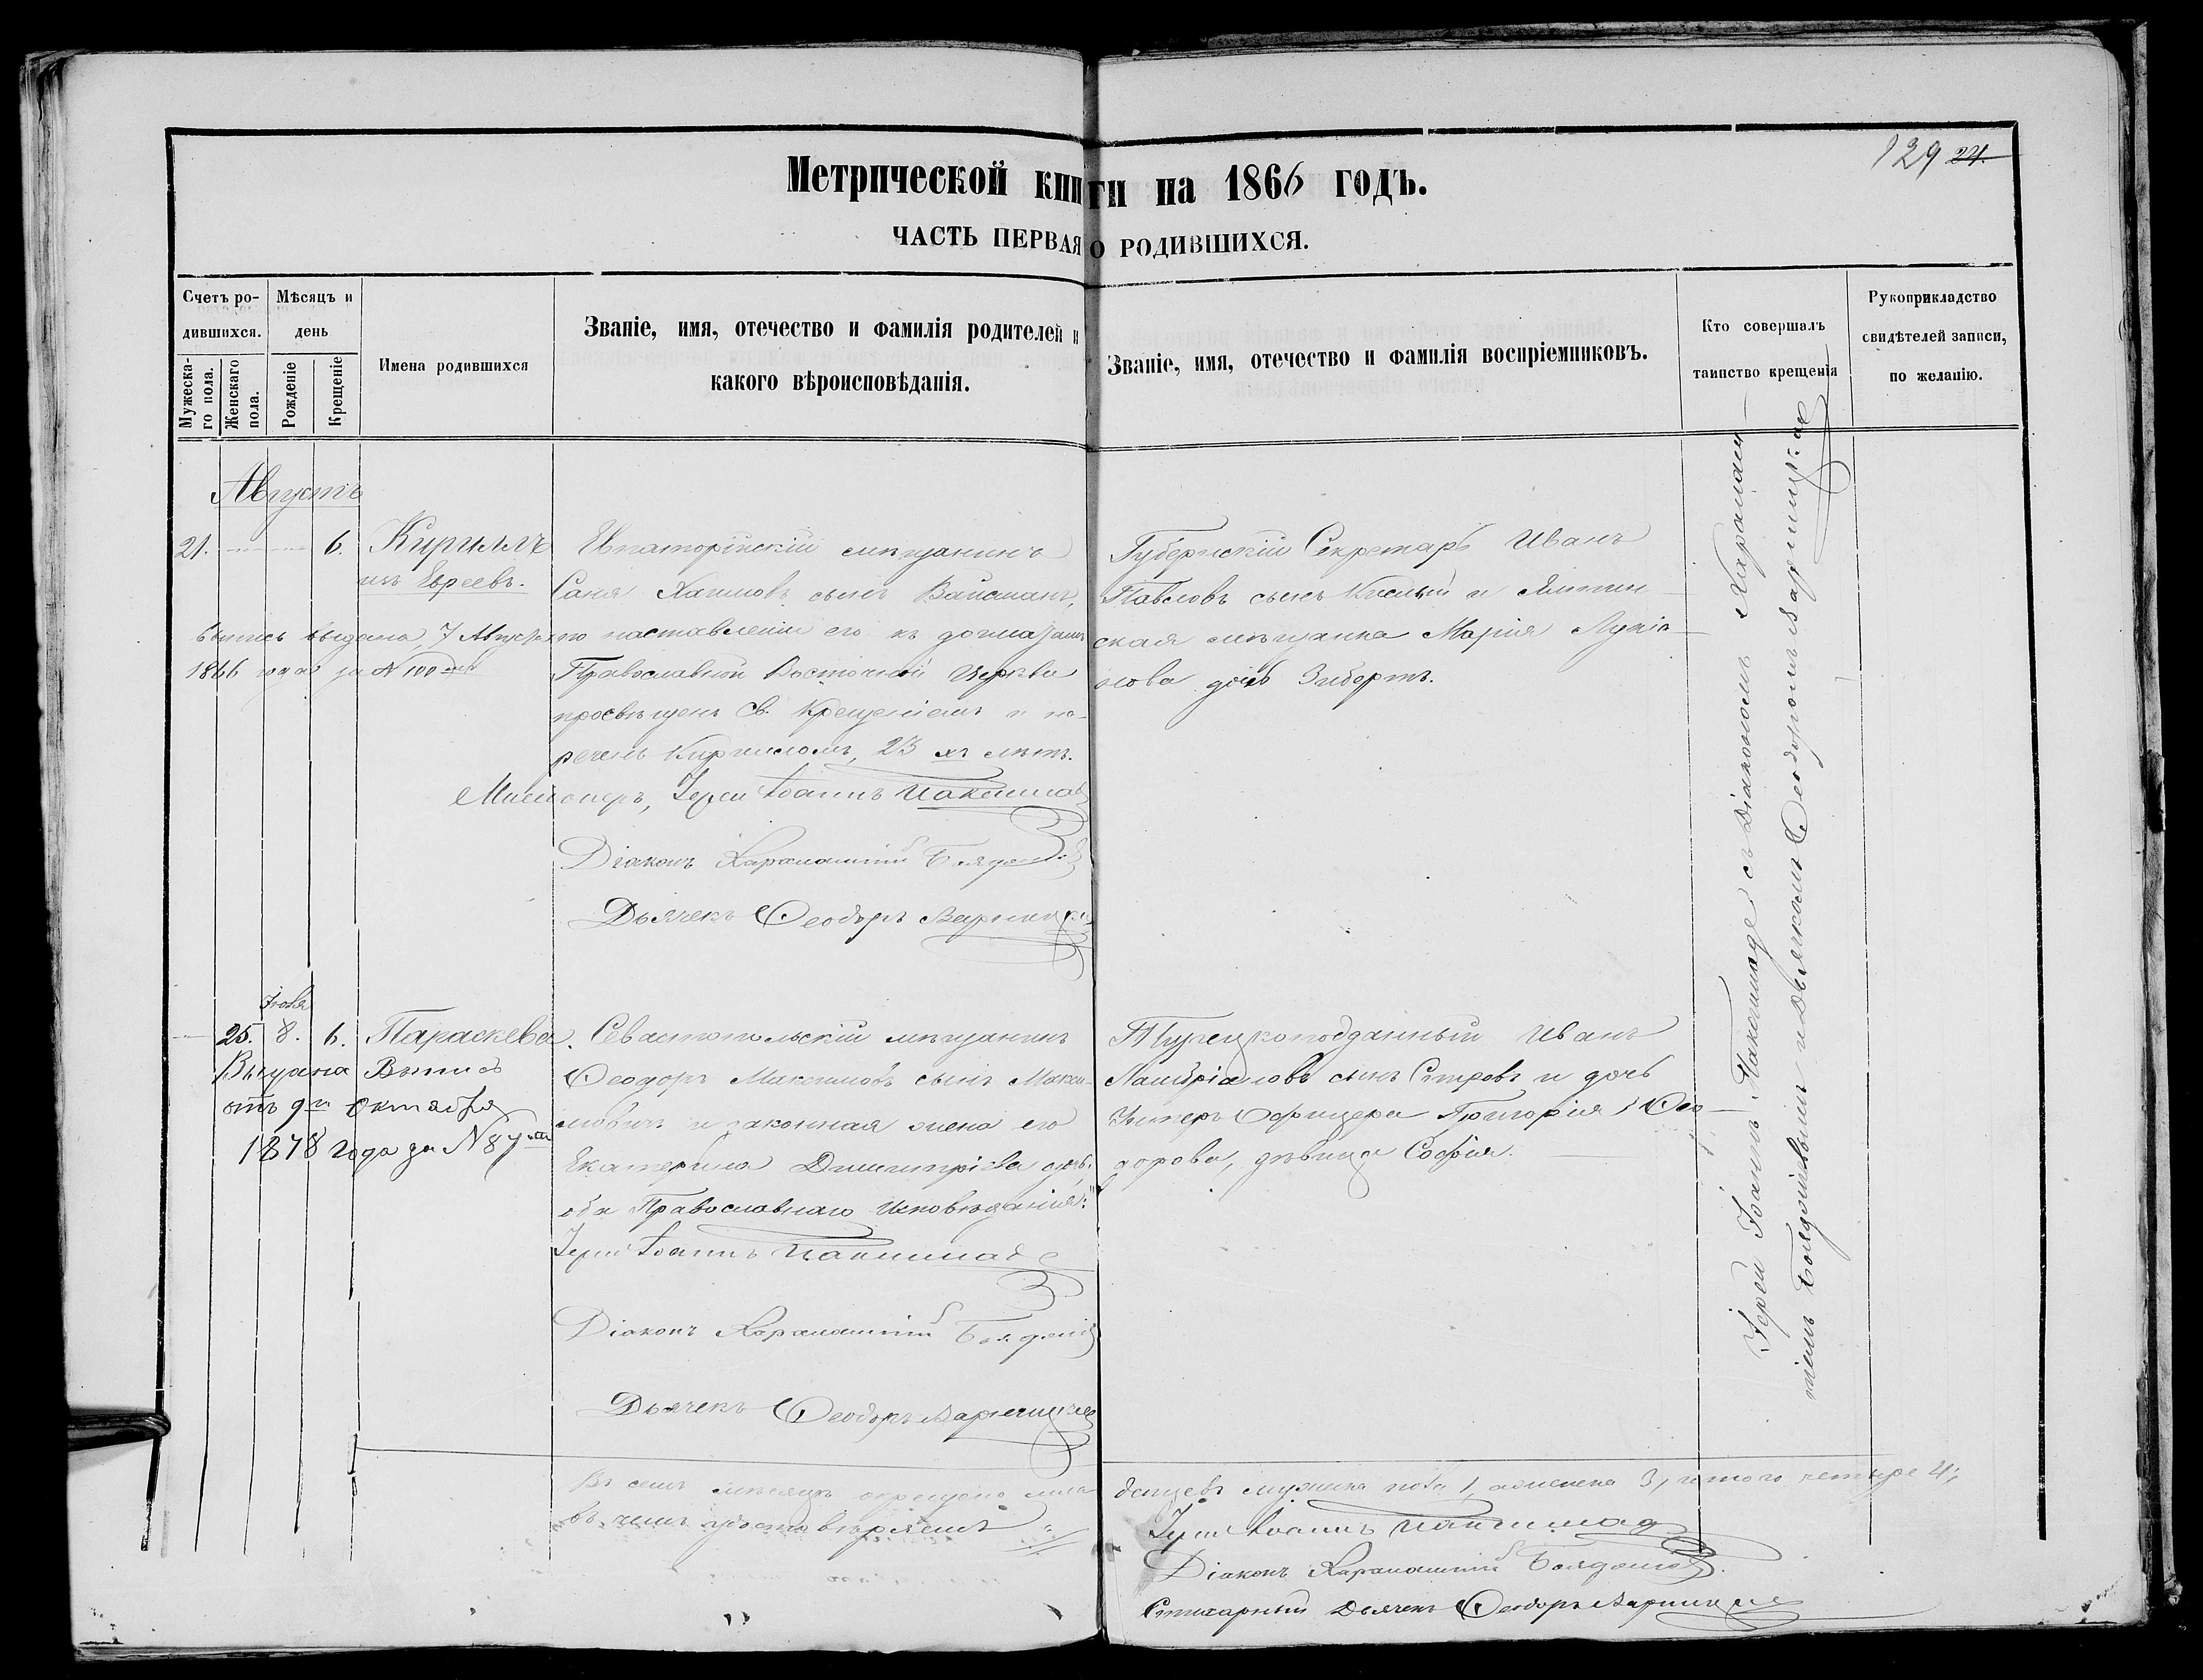 129 24.
Метрической книги на 1866 годъ.
ЧАСТЬ ПЕРВАЯ О РОДИВШИХСЯ.
Счетъ ро-
дившихся.
Мужеска-
го пола.
Женскаго
пола.
Мѣсяцъ и
день
Рожденіе
Крещеніе
Имена родившихся
Званіе, имя, отечество и фамилія родителей и
какого вѣроисповѣданія.
Званіе, имя, отечество и фамилія воспріемниковъ.
Кто совершалъ
таинство крещенія
Рукоприкладство
свидѣтелей записи,
по желанію.
Августъ
21. 6. Кириллъ
изъ Евреевъ.
выпись выдана 7 Августа
1866 года за № 100
Евпаторійскій мѣщанинъ
Хаимовъ сынъ Вайсманъ,
по наставленіи его въ догматахъ
Православной Восточной Церкви
просвѣщенъ Св. Крещеніемъ и на-
реченъ Кирилломъ, 23 хъ лѣтъ.
Миссіонеръ, Іерей Іоаннъ
Діаконъ Харалампій
Дьячекъ Ѳеодоръ
Губернскій Секретарь Иванъ
Павловъ сынъ и Ялтин
ская мѣщанка Марія
нова дочь Зибертъ.
Іюля
25. 8. 6. Параскева.
Выдана Выпись
отъ 9го Октября
1878 года за № 87
Севастопольскій мѣщанинъ
Ѳеодоръ Максимовъ сынъ Макси-
мовичъ и законная жена его
Екатерина Димитріева дочь,
оба Православнаго Исповѣданія.
Іерей Іоаннъ
Діаконъ Харалампій
Дьячекъ Ѳеодоръ
Турецкоподданный Иванъ
сынъ и дочь
Унтеръ Офицера Григорія Ѳео
дорова, дѣвица Софія.
Іерей Іоаннъ съ Діакономъ Харалам
піемъ и Дьячкомъ Ѳеодоромъ
Въ семъ мѣсяцѣ окрещено мла
денцевъ мужска пола 1, а женска 3, итого четыре 4;
въ чемъ удостовѣряемъ
Іерей Іоаннъ
Діаконъ Харалампій
Стихарный Дьячекъ Ѳеодоръ